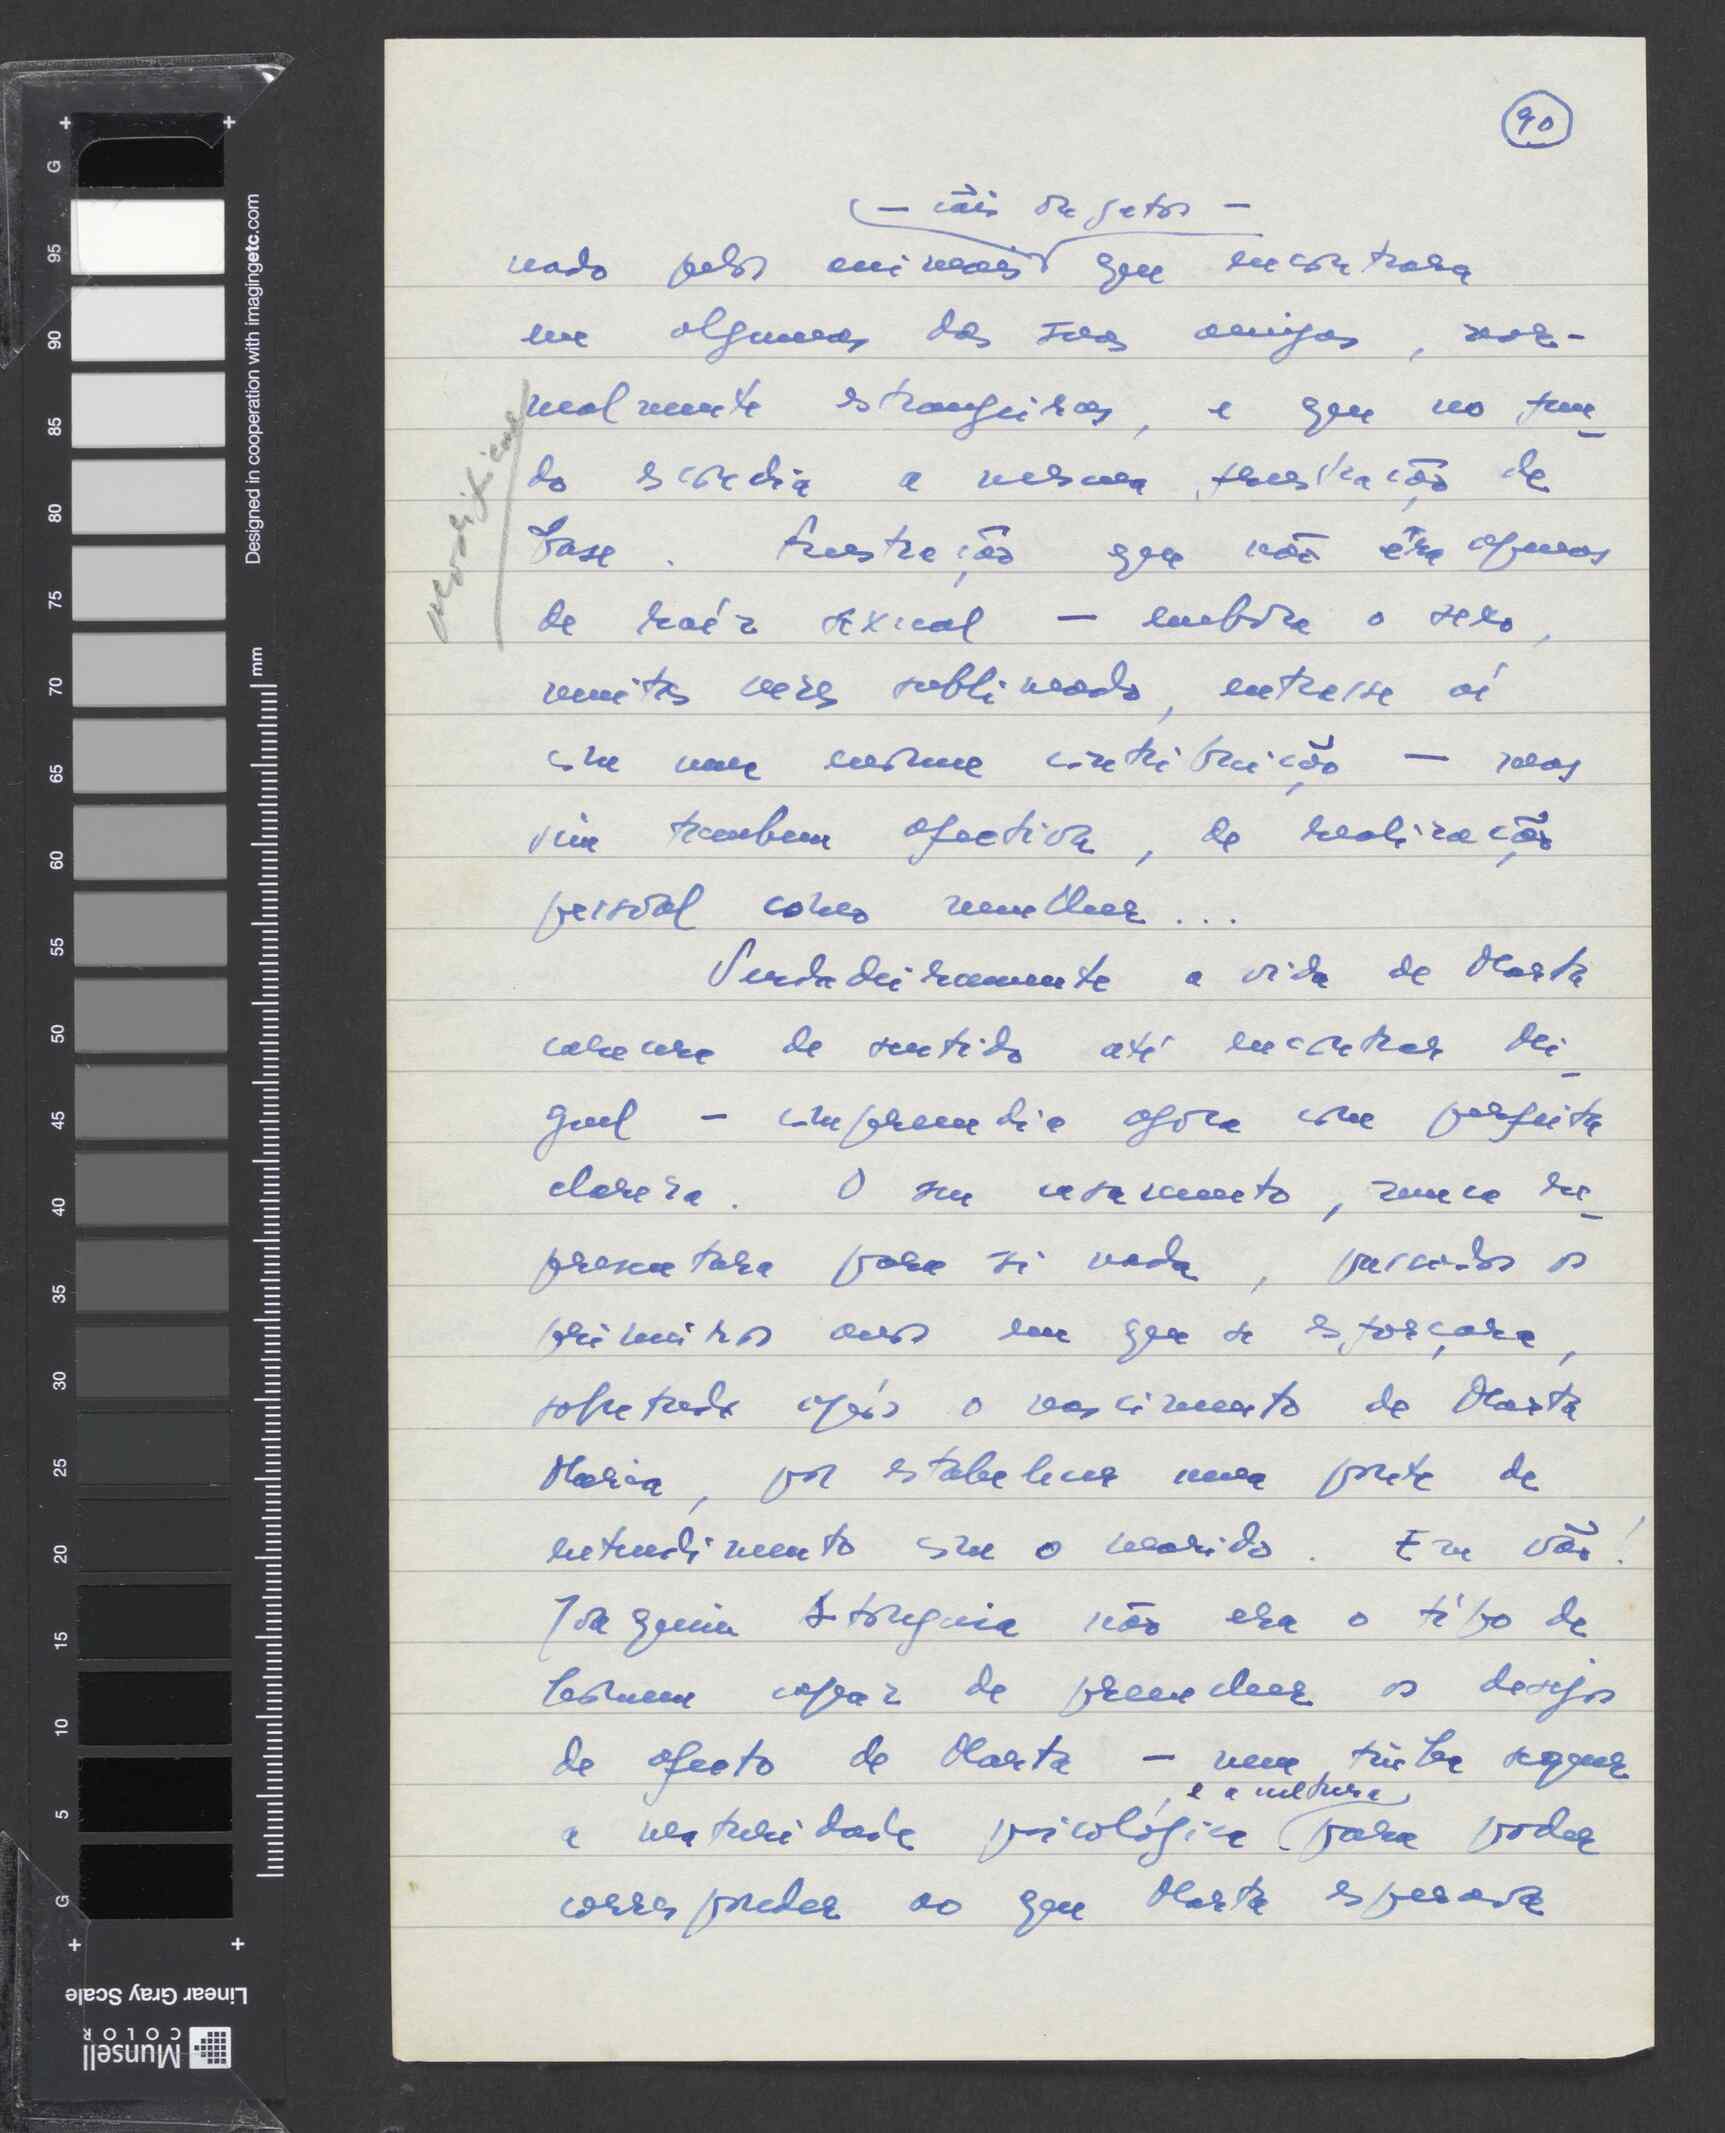 90
— cães ou gatos —
nado pelos animais que encontrara
em algumas das suas amigas, nor-
malmente estrangeiras, e que no fun-
do escondia a mesma frustração de
base. Frustração que não era apenas
de raíz sexual — embora o sexo,
muitas vezes sublimado, entrasse aí
com uma enorme contribuição — mas
sim tambem afectiva, de realização
pessoal como mulher...
Verdadeiramente a vida de Marta
carecera de sentido até encontrar Mi-
guel — compreendia agora com perfeita
clareza. O seu casamento, nunca re-
presentara para si nada, passados os
primeiros anos em que se esforçara,
sobretudo após o nascimento de Marta
Maria, por estabelecer uma ponte de
entendimento com o marido. Em vão!
Joaquim não era o tipo de
homem capaz de preencher os desejos
de afecto de Marta — nem tinha sequer
e a cultura
a maturidade psicológica para poder
corresponder ao que Marta esperava
G
95
90
85
80
75
70
65
60
55
50
45
40
35
30
25
20
15
10
5
G
mm
Designed in cooperation with imagingetc.com
Linear Gray Scale
Munsell
COLOR